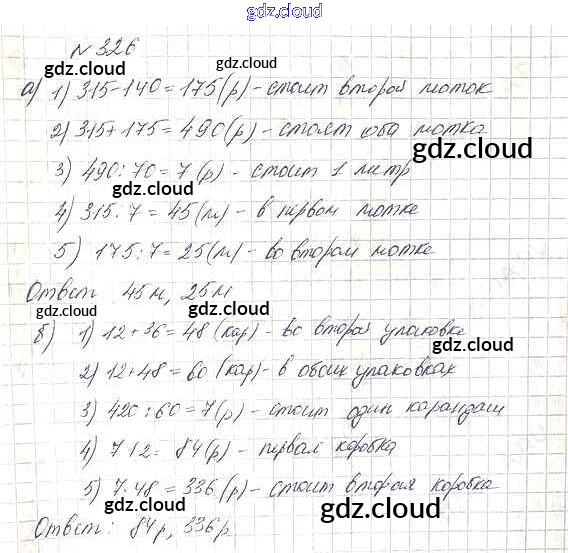 gdz.cloud
N 326
gdz.cloud gdz.cloud
а) 1) 315-140=175(р)-стоит второй моток
2) 315+175=490(р)-стоят оба мотка
gdz.cloud
3) 490:70=7(р)-стоит 1 литр
gdz.cloud
4) 315:7=45(м)-в первом мотке
5) 175:7=25(м)-во втором мотке
Ответ 45м, 25м
gdz.cloud gdz.cloud
б) 1) 12+36=48(кар)-во второй упаковке
gdz.cloud
2) 12+48=60(кар)-в обоих упаковках
3) 420:60=7(р)-стоит один карандаш
gdz.cloud
4) 7·12=84(р)-первая коробка
5) 7·48=336(р)-стоит вторая коробка
gdz.cloud
Ответ: 84р, 336р
gdz.cloud
gdz.cloud